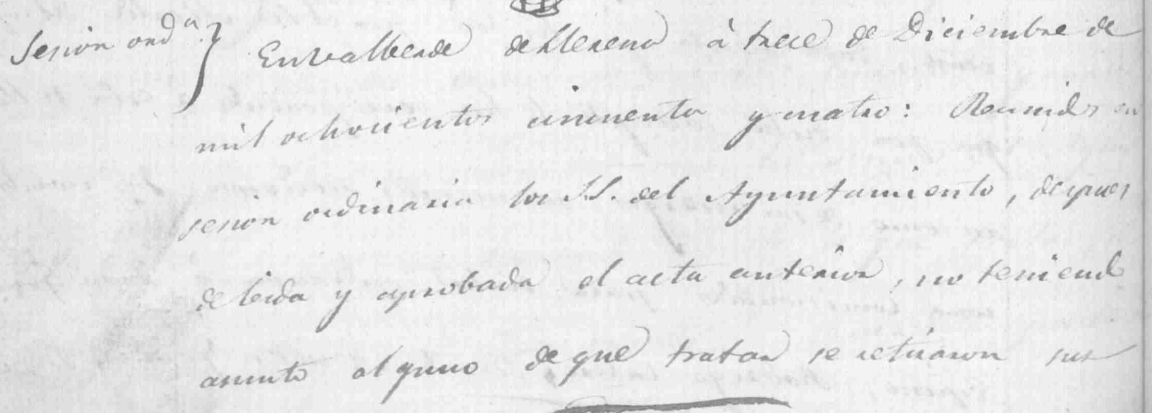 Sesion ord.ª
En Valberde de Llerena à trece de Diciembre de
mil ochocientos cincuenta y cuatro: Reunidos en
sesion ordinaria los SS. del Ayuntamiento, despues
de leida y aprobada el acta anterior, no teniendo
asunto alguno de que tratar se retiraron sus